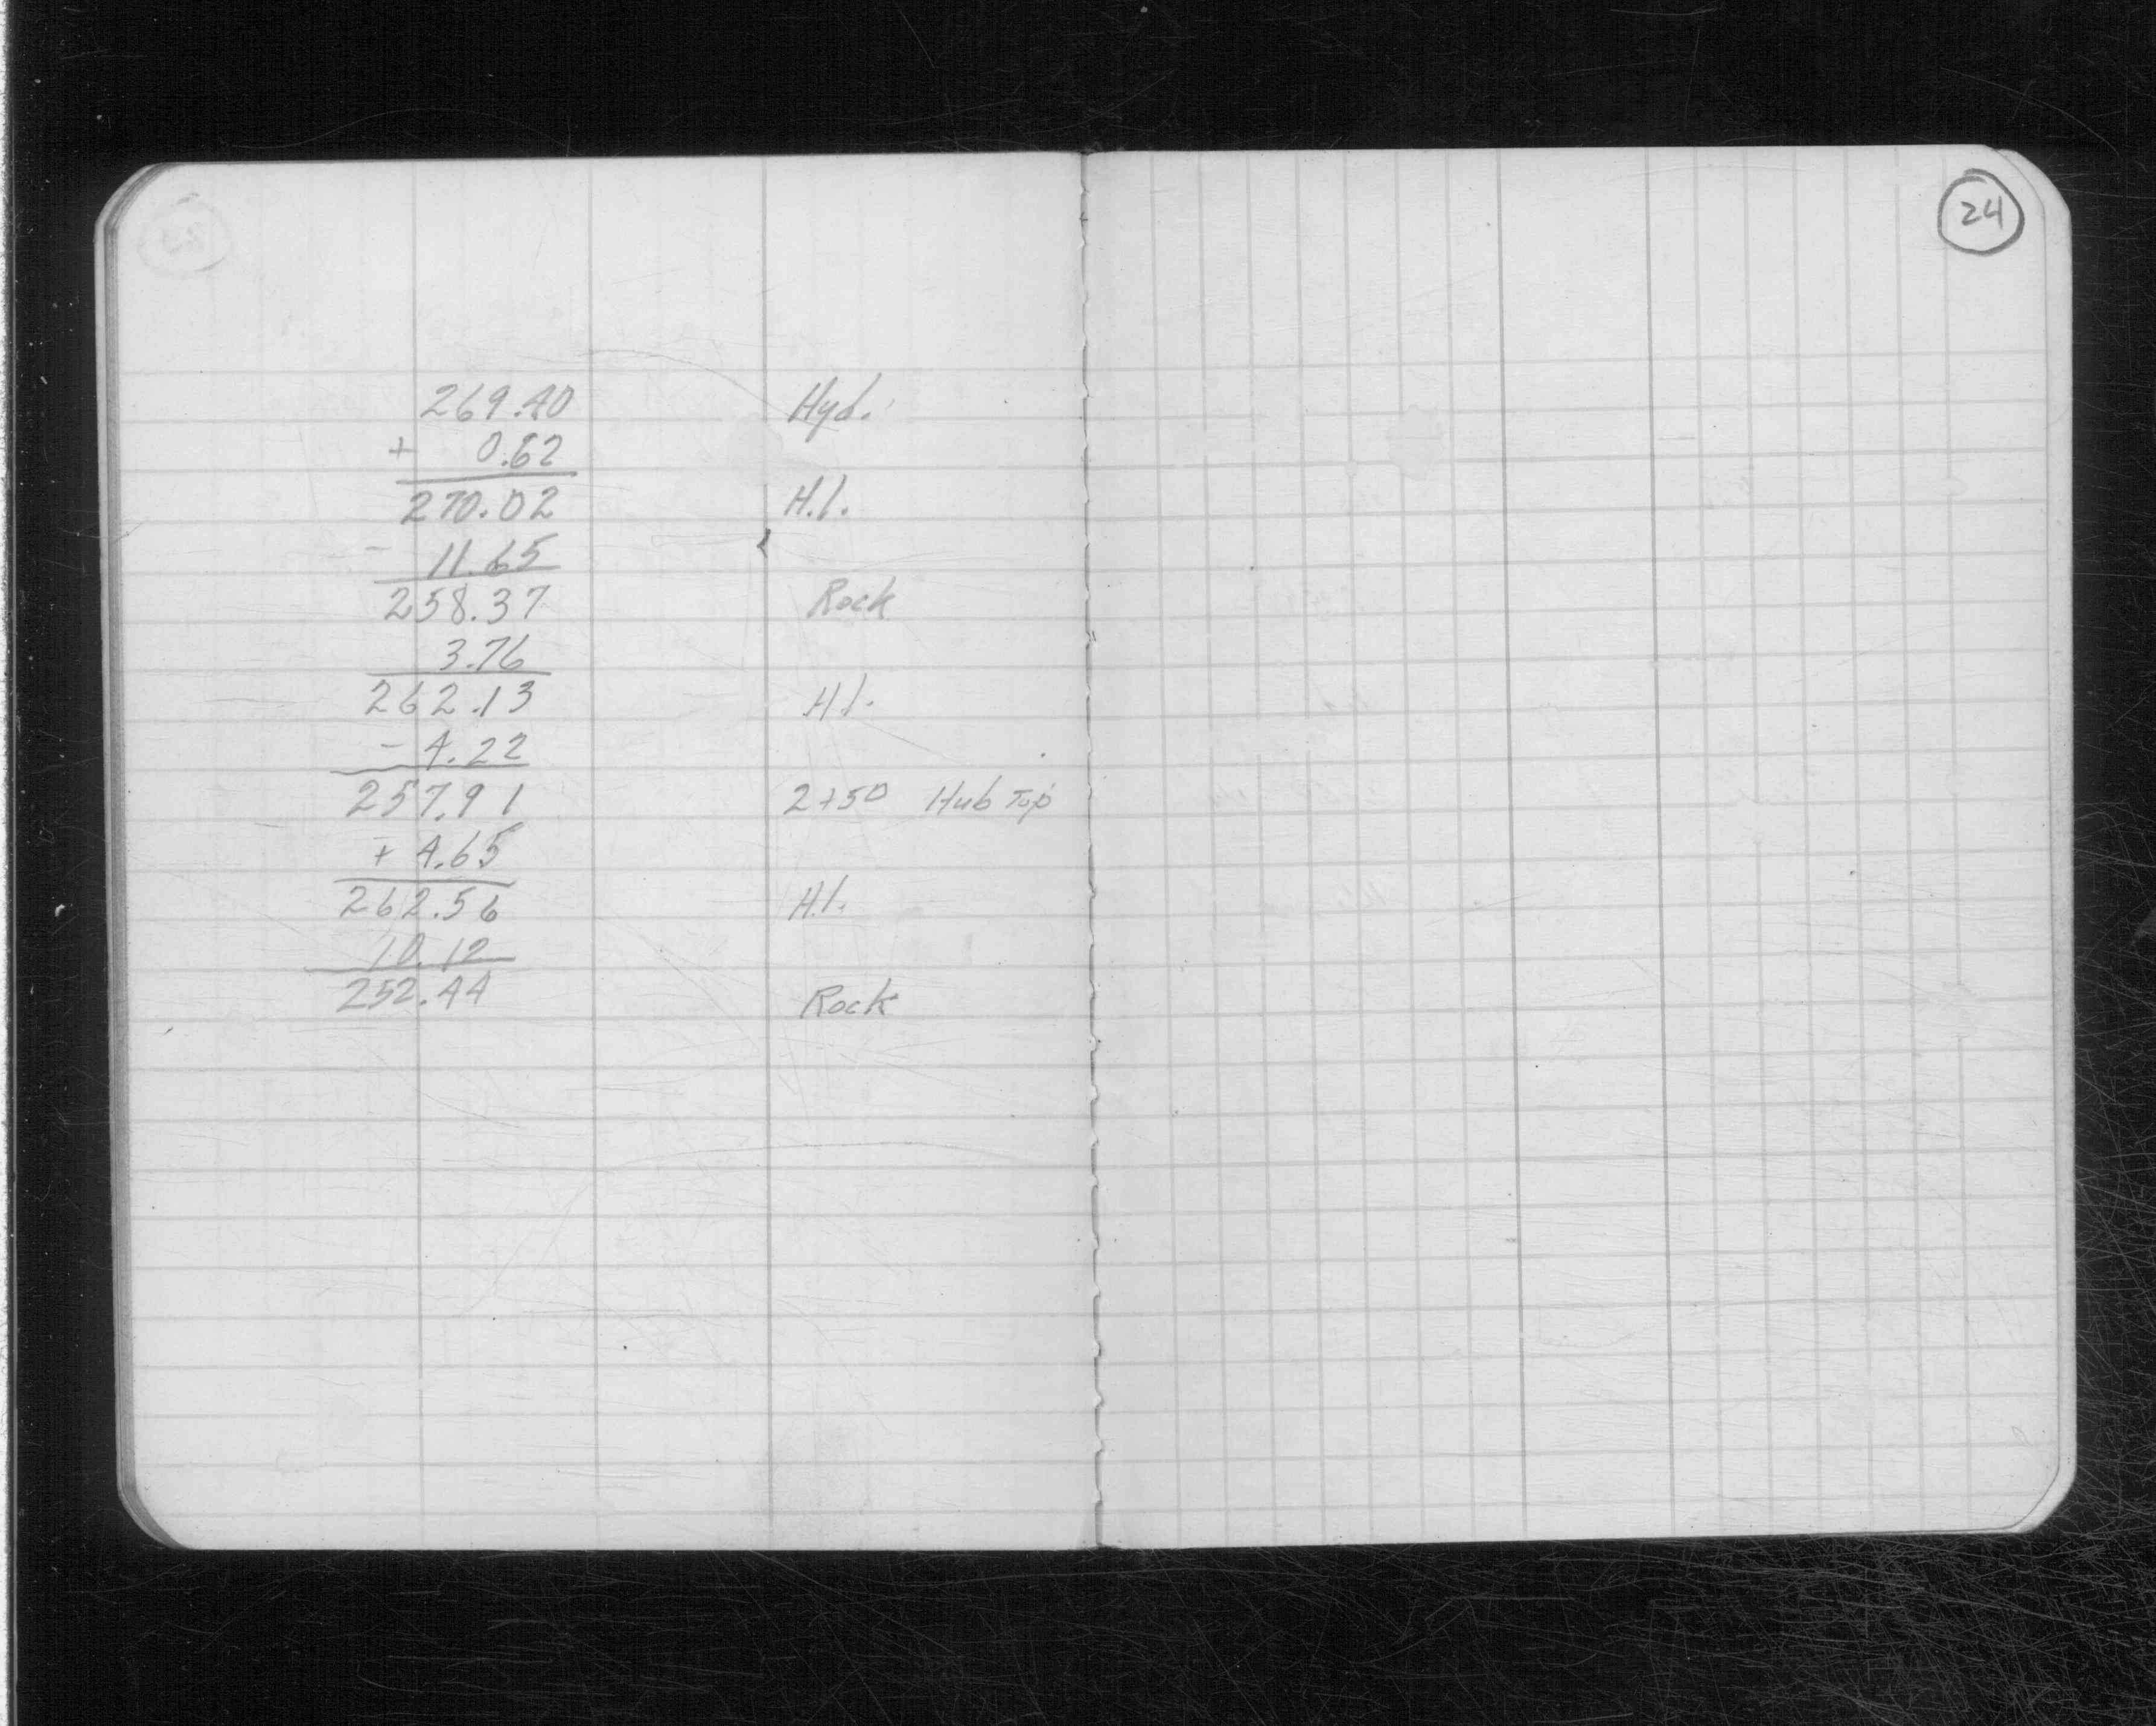 24
269.40 Hyd.
+ 0.62
270.02 H.I.
- 11.65
258.37 Rock
3.76
262.13 H.I.
- 4.22
257.91 2+50 Hub Top
+ 4.65
262.56 H.I.
10.12
252.44 Rock